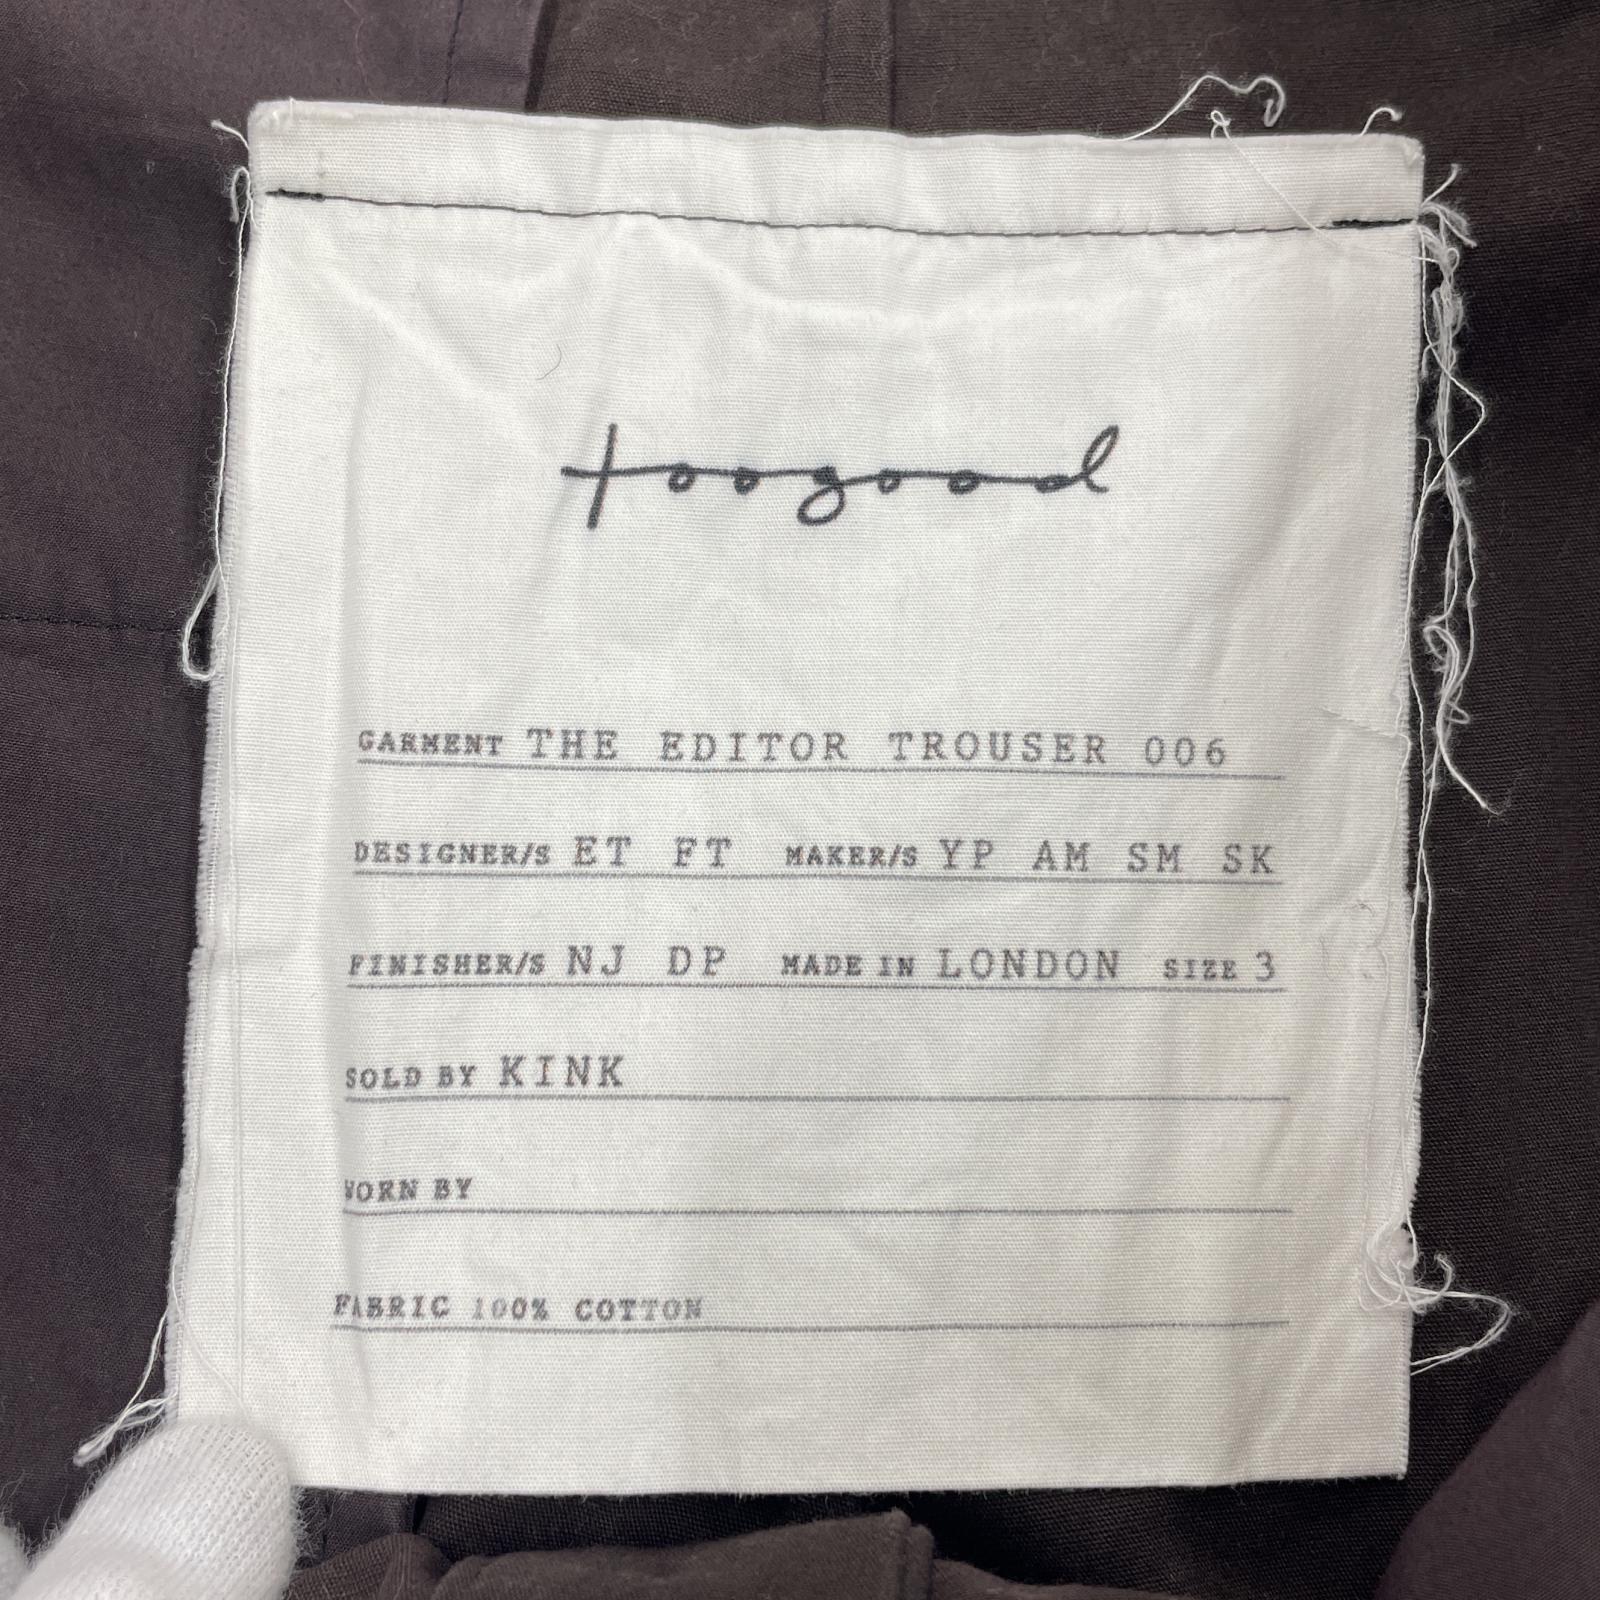 toogood
GARMENT THE EDITOR TROUSER 006
DESIGNER/S ET FT MAKER/S YP AM SM SK
FINISHER/S NJ DP MADE IN LONDON SIZE 3
SOLD BY KINK
WORN BY
FABRIC 100% COTTON